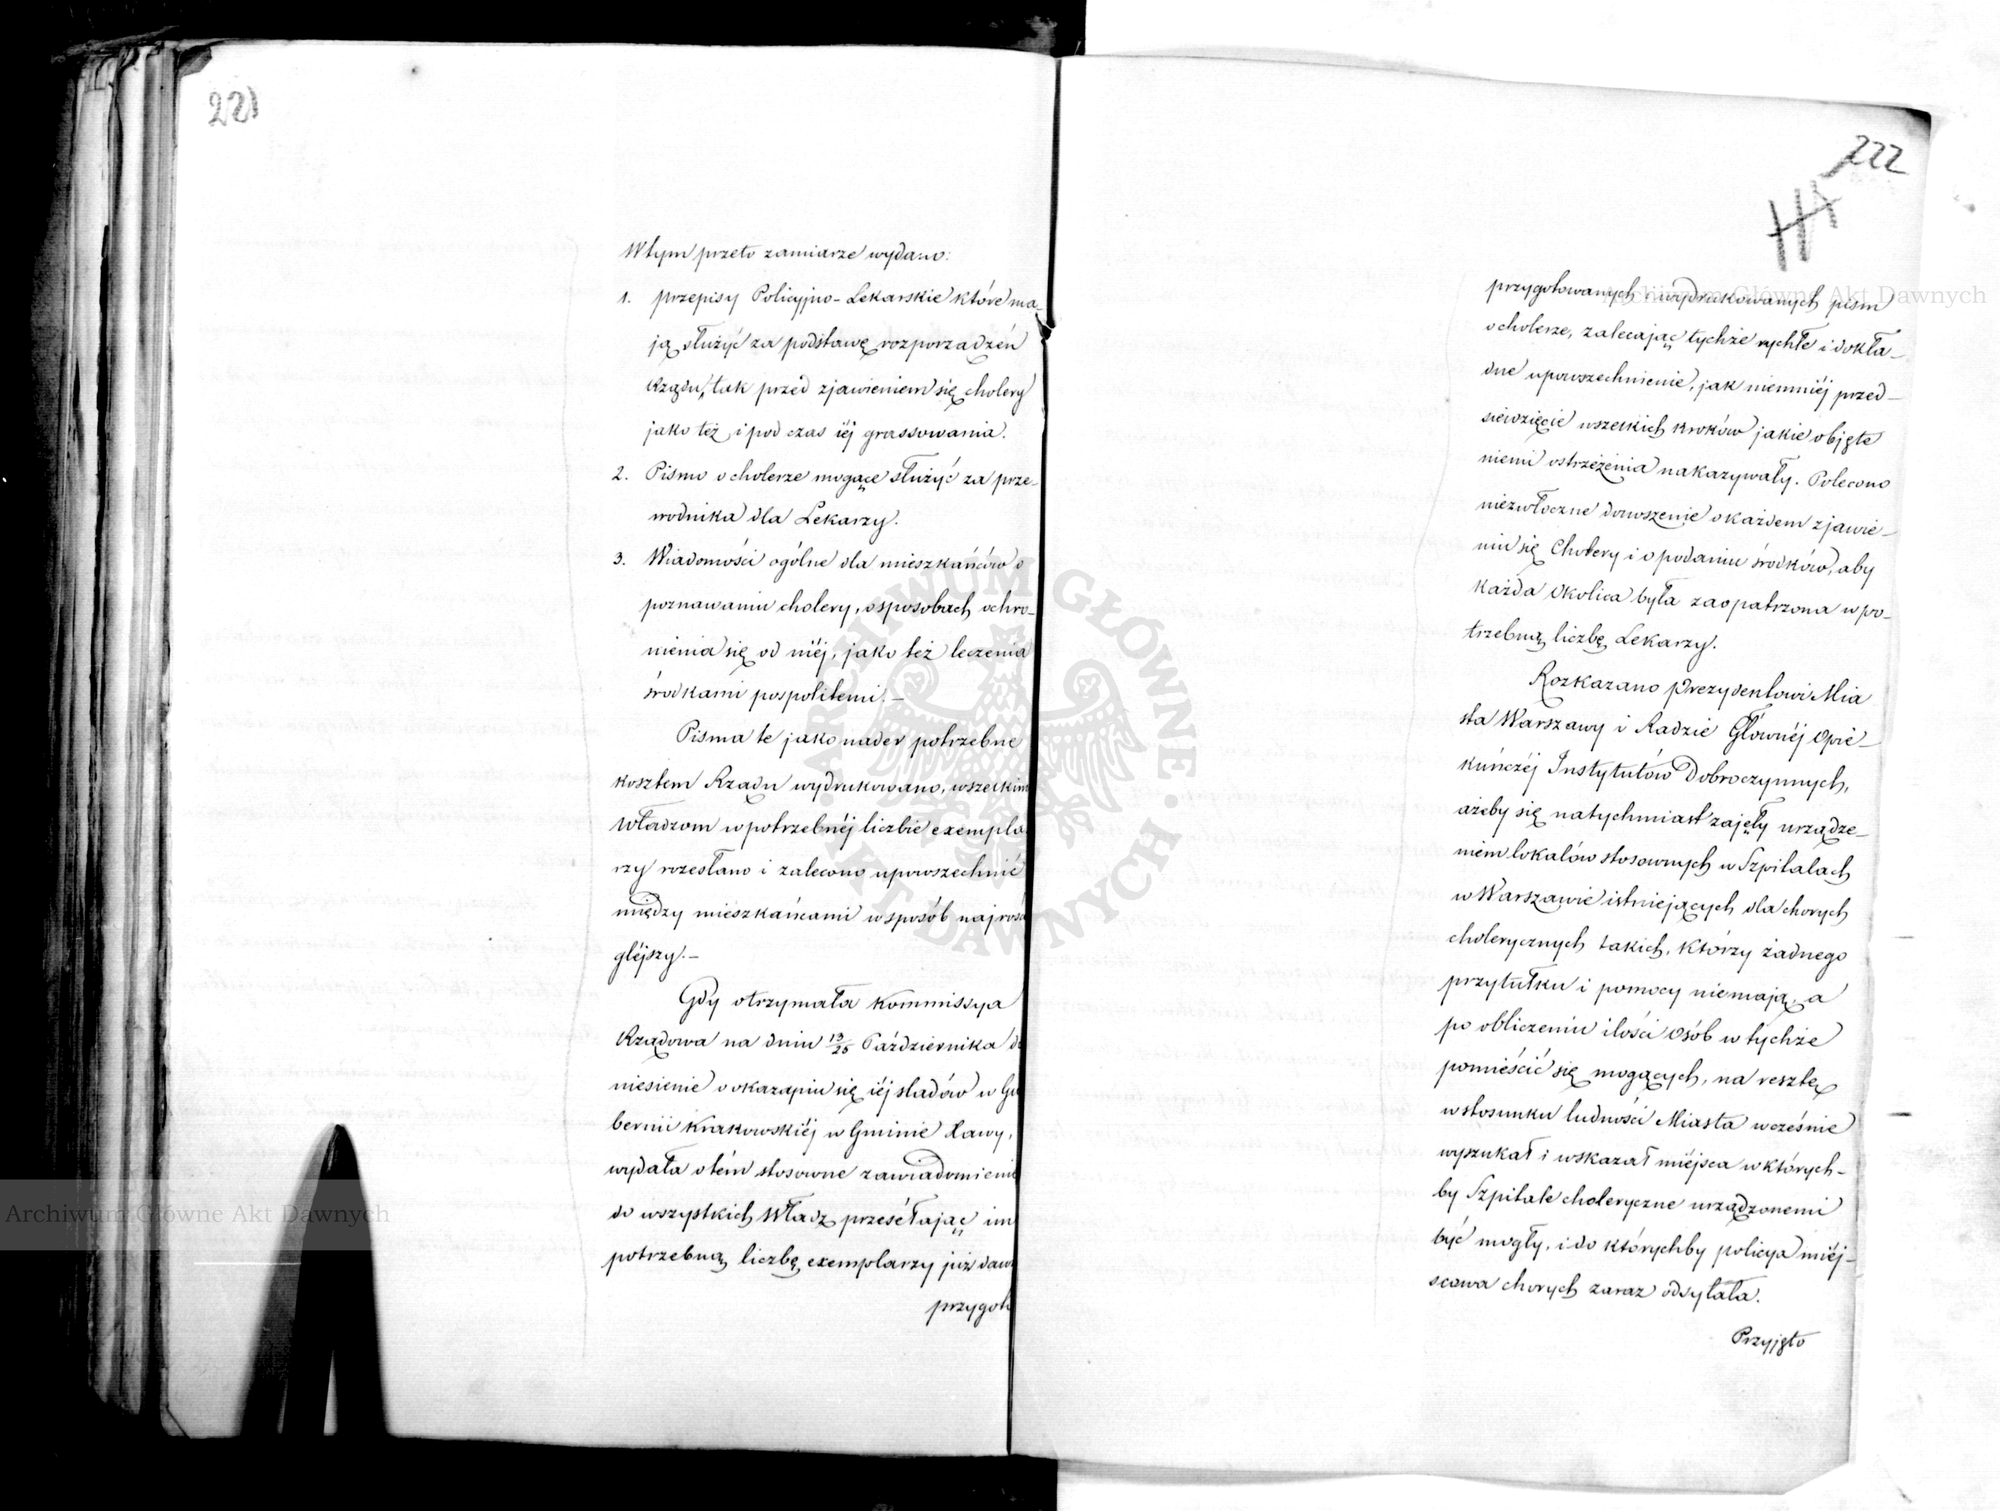 221
W tym przeto zamiarze wydano:
1. przepisy Policyjno-Lekarskie które ma-
ją służyć za podstawę rozporządzeń
Rządu, tak przed zjawieniem się cholery
jako też i podczas iéj grassowania.
2. Pismo o cholerze mogące służyć za prze-
wodnika dla Lekarzy.
3. Wiadomości ogólne dla mieszkańców o
poznawaniu cholery, o sposobach ochro-
nienia się od niéj, jako też leczenia
środkami pospolitemi.-
Pisma te jako nader potrzebne
kosztem Rządu wydrukowano, wszelkim
Władzom w potrzebnéj liczbie exempla
rzy rozesłano i zalecono upowszechnić
między mieszkańcami w sposób najrozcią
gléjszy.-
Gdy otrzymała Kommissya
Rządowa na dniu 13/25 Października do
niesienie o okazaniu się iéj sladów w Gu
bernii Krakowskiéj w Gminie Ławy,
wydała o tém stosowne zawiadomienie
do wszystkich Władz przesełając im
potrzebną liczbę exemplarzy już daw
przygoto
222
przygotowanych i wydrukowanych pism
o cholerze, zalecając tychże rychłe i dokła-
dne upowszechnienie, jak niemniéj przed-
siewzięcie wszelkich kroków jakie objęte
niemi ostrzeżenia nakazywały. Polecono
niezwłoczne donoszenie o każdem zjawie-
niu się Cholery i o podaniu środków, aby
każda okolica była zaopatrzona w po-
trzebną liczbę Lekarzy.
Rozkazano Prezydentowi Mia
sta Warszawy i Radzie Głównéj Opie-
kuńczéj Instytutów Dobroczynnych,
ażeby się natychmiast zajęły urządze-
niem lokalów stosownych w Szpitalach
w Warszawie istniejących dla chorych
cholerycznych takich, którzy żadnego
przytułku i pomocy niemają, a
po obliczeniu ilości osób w tychże
pomieścić się mogących, na resztę
w stosunku ludności Miasta wcześnie
wyszukał i wskazał miéjsca w których-
by Szpitale choleryczne urządzonemi
być mogły, i do którychby policya miéj-
scowa chorych zaraz odsyłała.
Przyjęto
Archiwum Główne Akt Dawnych
Archiwum Główne Akt Dawnych
ARCHIWUM GŁÓWNE AKT DAWNYCH